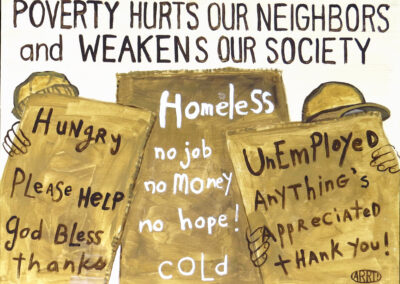 POVERTY HURTS OUR NEIGHBORS
and WEAKENS OUR SOCIETY
HUNgRy
PLeASe HELP
god BLess
thanks
Homeless
no job
no money
no hope!
COLd
UnEmPloyeD
AnyTHing's
Appreciated
tHank you!
ARRT!